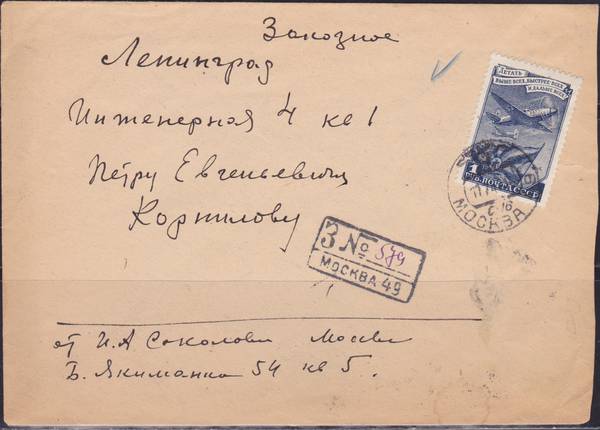 Заказное
Ленинград
Инженерная 4 кв 1
Петру Евгеньевичу
Корнилову
ЛЕТАТЬ
ВЫШЕ ВСЕХ, БЫСТРЕЕ ВСЕХ
И ДАЛЬШЕ ВСЕХ
1
РУБ. ПОЧТА СССР
МОСКВА
З № 579
МОСКВА 49
от И.А Соколова Москва
Б. Якиманка 54 кв 5.